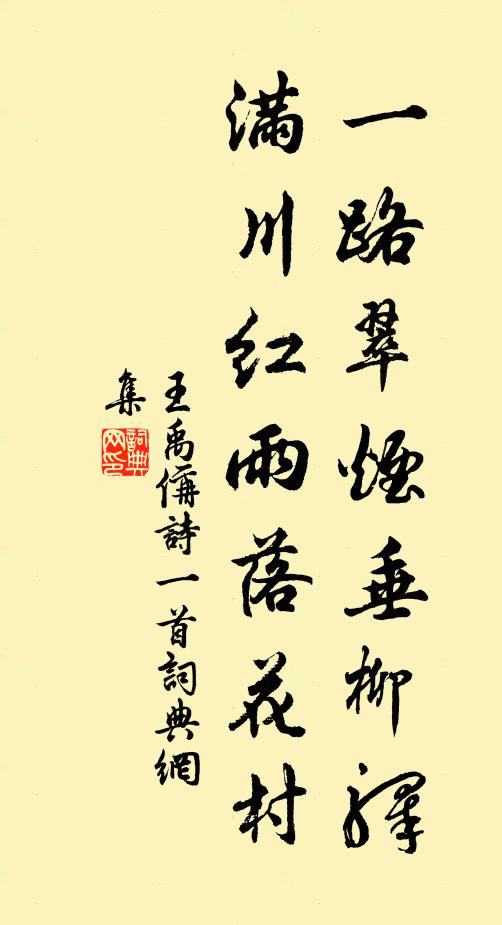 一路翠煙垂柳驛
滿川紅雨落花村
王禹偁詩一首詞典網
集
詞典网印